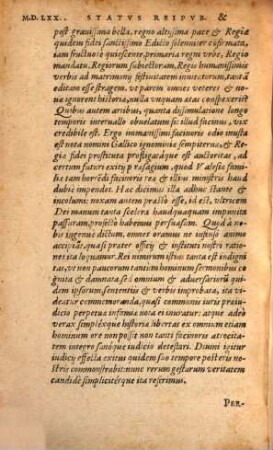 M.D.LXX. STATVS REIPVB. &
post gravissima bella, regno altissima pace & Regiæ
quidem fidei sanctissimo Edicto solenniter confirmata,
iam fructuose quiescente, primaria regni vrbe, Regio
mandatu, Regiorum subiectorum, Regis humanissimis
verbis ad matrimonij festiuitatem inuitatorum, tantã
editam esse stragem, vt parem omnes veteres &
noui ignorent historiæ, nulla vnquam ætas conspexerit.
Quibus autem artibus, quanta dissimulatione longo
temporis interuallo obuolutum id facinus fuerit, vix
credibile est. Ergo immanissimi facinoris odio inusta
est nota nomini Gallico ignominiæ sempiternæ, &
Regiæ fidei prostituta profligataque est auctoritas, ad
certum futuri exitij præsagium, quod Valesiæ familiæ
tam horrēdi facinoris reæ & vltrici minitari haud
dubiè impendet. Hæc dicimus illa adhuc stante &
incolumi: noxam autem præstò esse, id est, vltricem
Dei manum tanta scelera haudquaquam impunita
passuram, profectò habemus persuasum. Quid à nobis
ingenuè dictum, omnes oramus vt iusto animo
accipiāt, quasi præter officij & instituti nostri rationes
ita loquamur. Rei nimirum istius tanta est indignitas,
vt non paucorum tantum hominum sermonibus cognita
& damnata sed omnium & aduersariorū quidem
ipsorum sententiis & verbis improbata, ita videatur
commemoranda, quasi communis iuris præiudicio
perpetua infamiæ nota ei inuratur: atque adeò
verax simplexque historiæ libertas ex omnium etiam
hominum ore non possit non tanti facinoris atrocitatem
integro sanoque iudicio detestari. Diuini igitur
iudicij effecta exitus quidem suo tempore posteris nostris
commonstrabit: nunc rerum gestarum veritatem
candidè simpliciterque ita referimus.
PER-